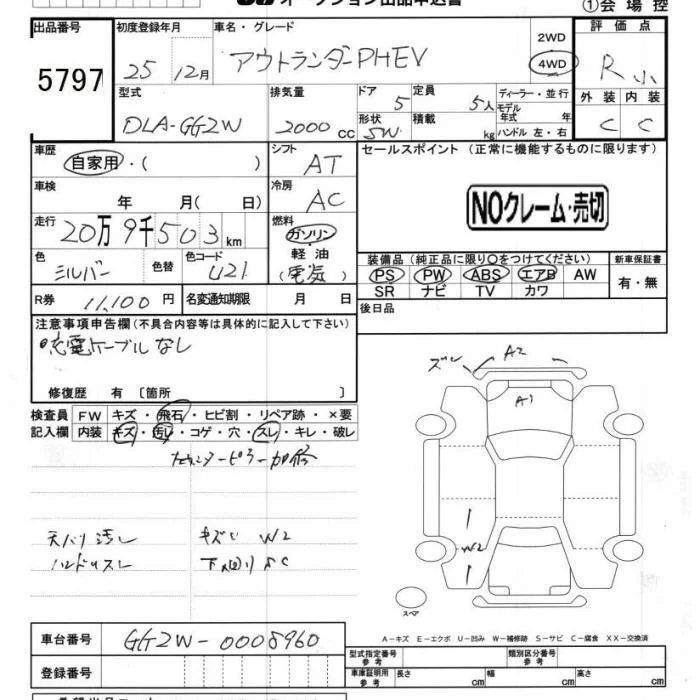 オークション出品申込書
①会場控
出品番号 初度登録年月 車名・グレード 評価点
5797 25 12月 アウトランダーPHEV 2WD 4WD R
型式 排気量 ドア 定員 ディーラー・並行 外装 内装
DLA-GG2W 2000cc 5 5人 モデル年式 年 C C
形状 5W 積載 kg ハンドル 左・右
車歴 自家用・( ) シフト AT セールスポイント (正常に機能するものに限ります)
車検 年 月( 日) 冷房 AC NOクレーム・売切
走行 20万9千503km 燃料 ガソリン・軽油 (電気)
色 シルバー 色替 色コード U21
装備品(純正品に限り○をつけてください) 新車保証書
PS PW ABS エアB AW 有・無
SR ナビ TV カワ
R券 11,100円 名変通知期限 月 日 後日品
注意事項申告欄(不具合内容等は具体的に記入して下さい)
充電ケーブルなし
ズレ A2
A1
修復歴 有 [箇所 ]
検査員 FW キズ・飛石・ヒビ割・リペア跡・×要
記入欄 内装 キズ・汚レ・コゲ・穴・スレ・キレ・破レ
センターピラー加修
天バリ汚レ W2
ハンドルスレ 下回り C
W2
スペア
A-キズ E-エクボ U-凹み W-補修跡 S-サビ C-腐食 XX-交換済
車台番号 GG2W-0005960
型式指定番号 参考 類別区分番号 参考
登録番号 車庫証明用 参考 長さ cm 幅 cm 高さ cm